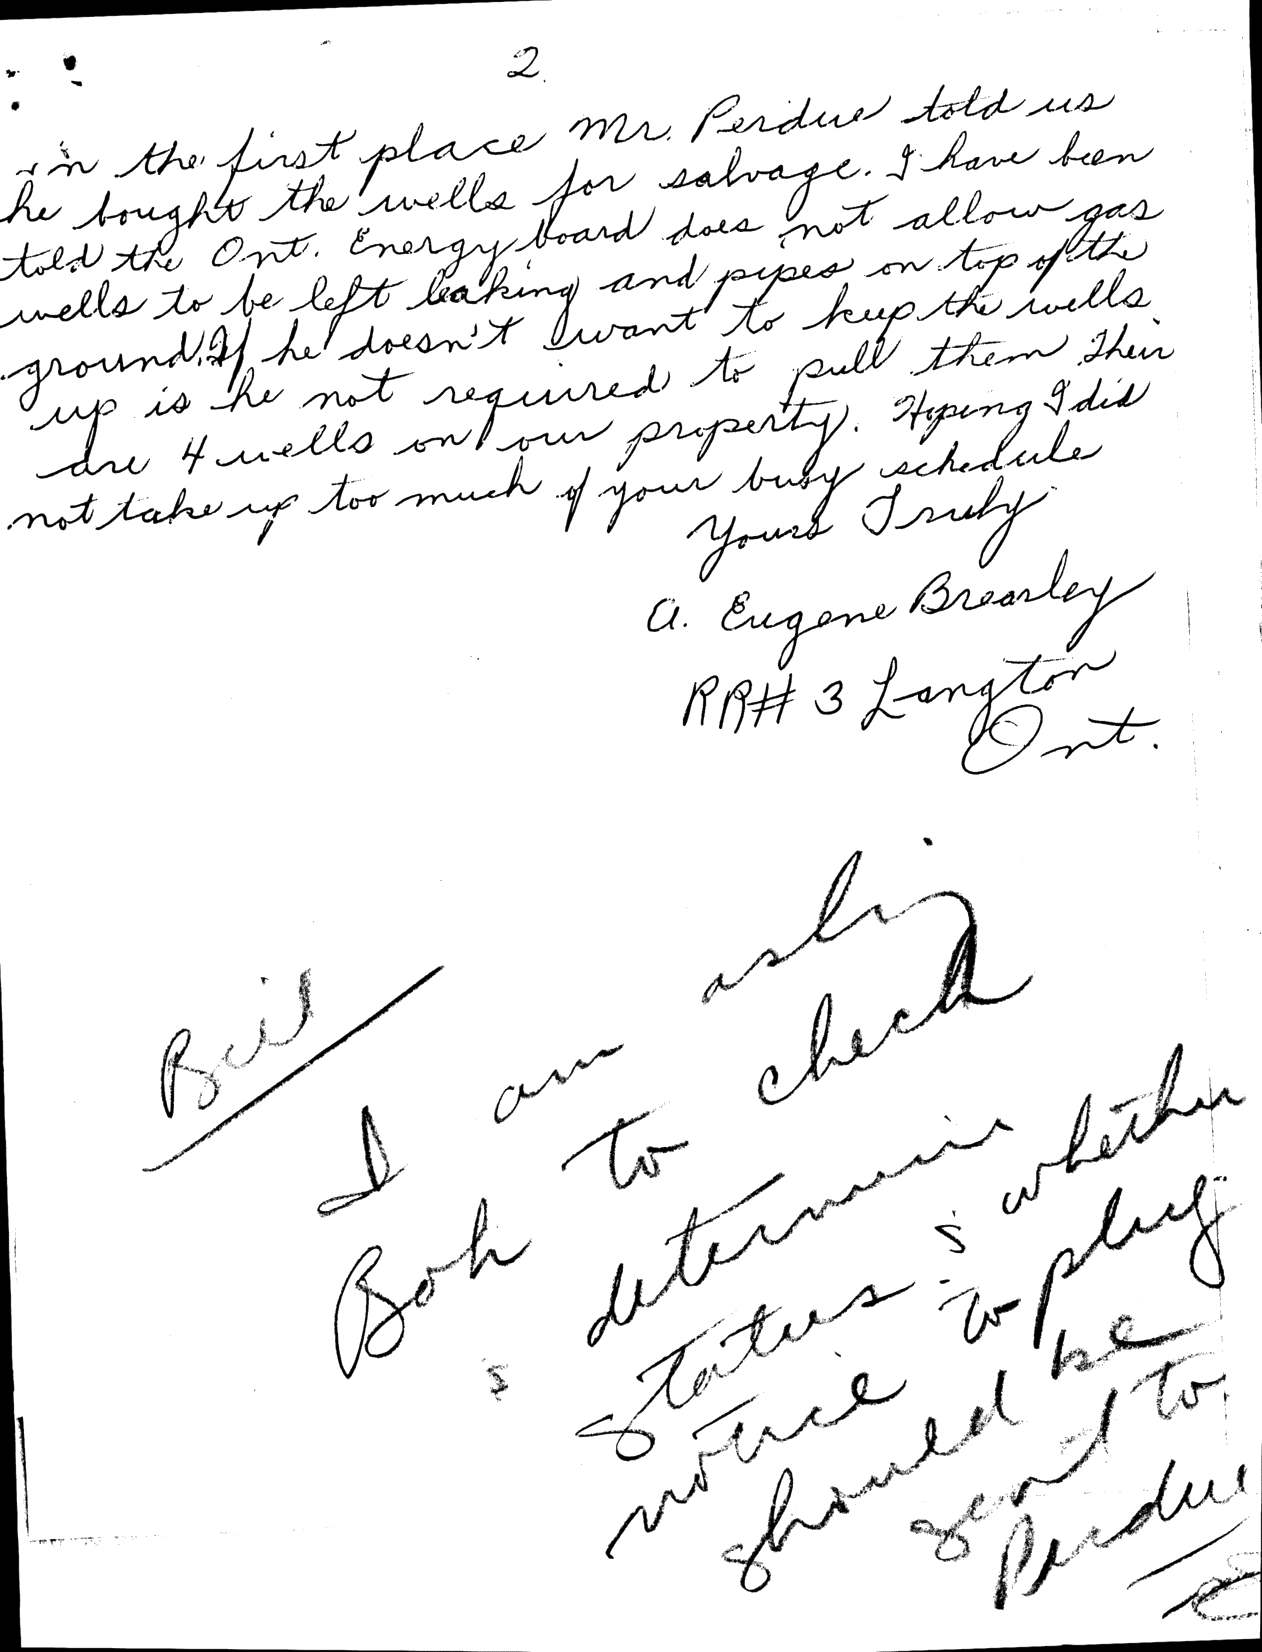 2.
in the first place Mr. Perdue told us
he bought the wells for salvage. I have been
told the Ont. Energy board does not allow gas
wells to be left leaking and pipes on top of the
ground. If he doesn't want to keep the wells
up is he not required to pull them. Their
are 4 wells on our property. Hoping I did
not take up too much of your busy schedule
Yours Truly
A. Eugene Brearley
RR# 3 Langton
Ont.
Bill
I am asking
Bob to check
& determine
status & whether
notice to plug
should be
sent to
Perdue